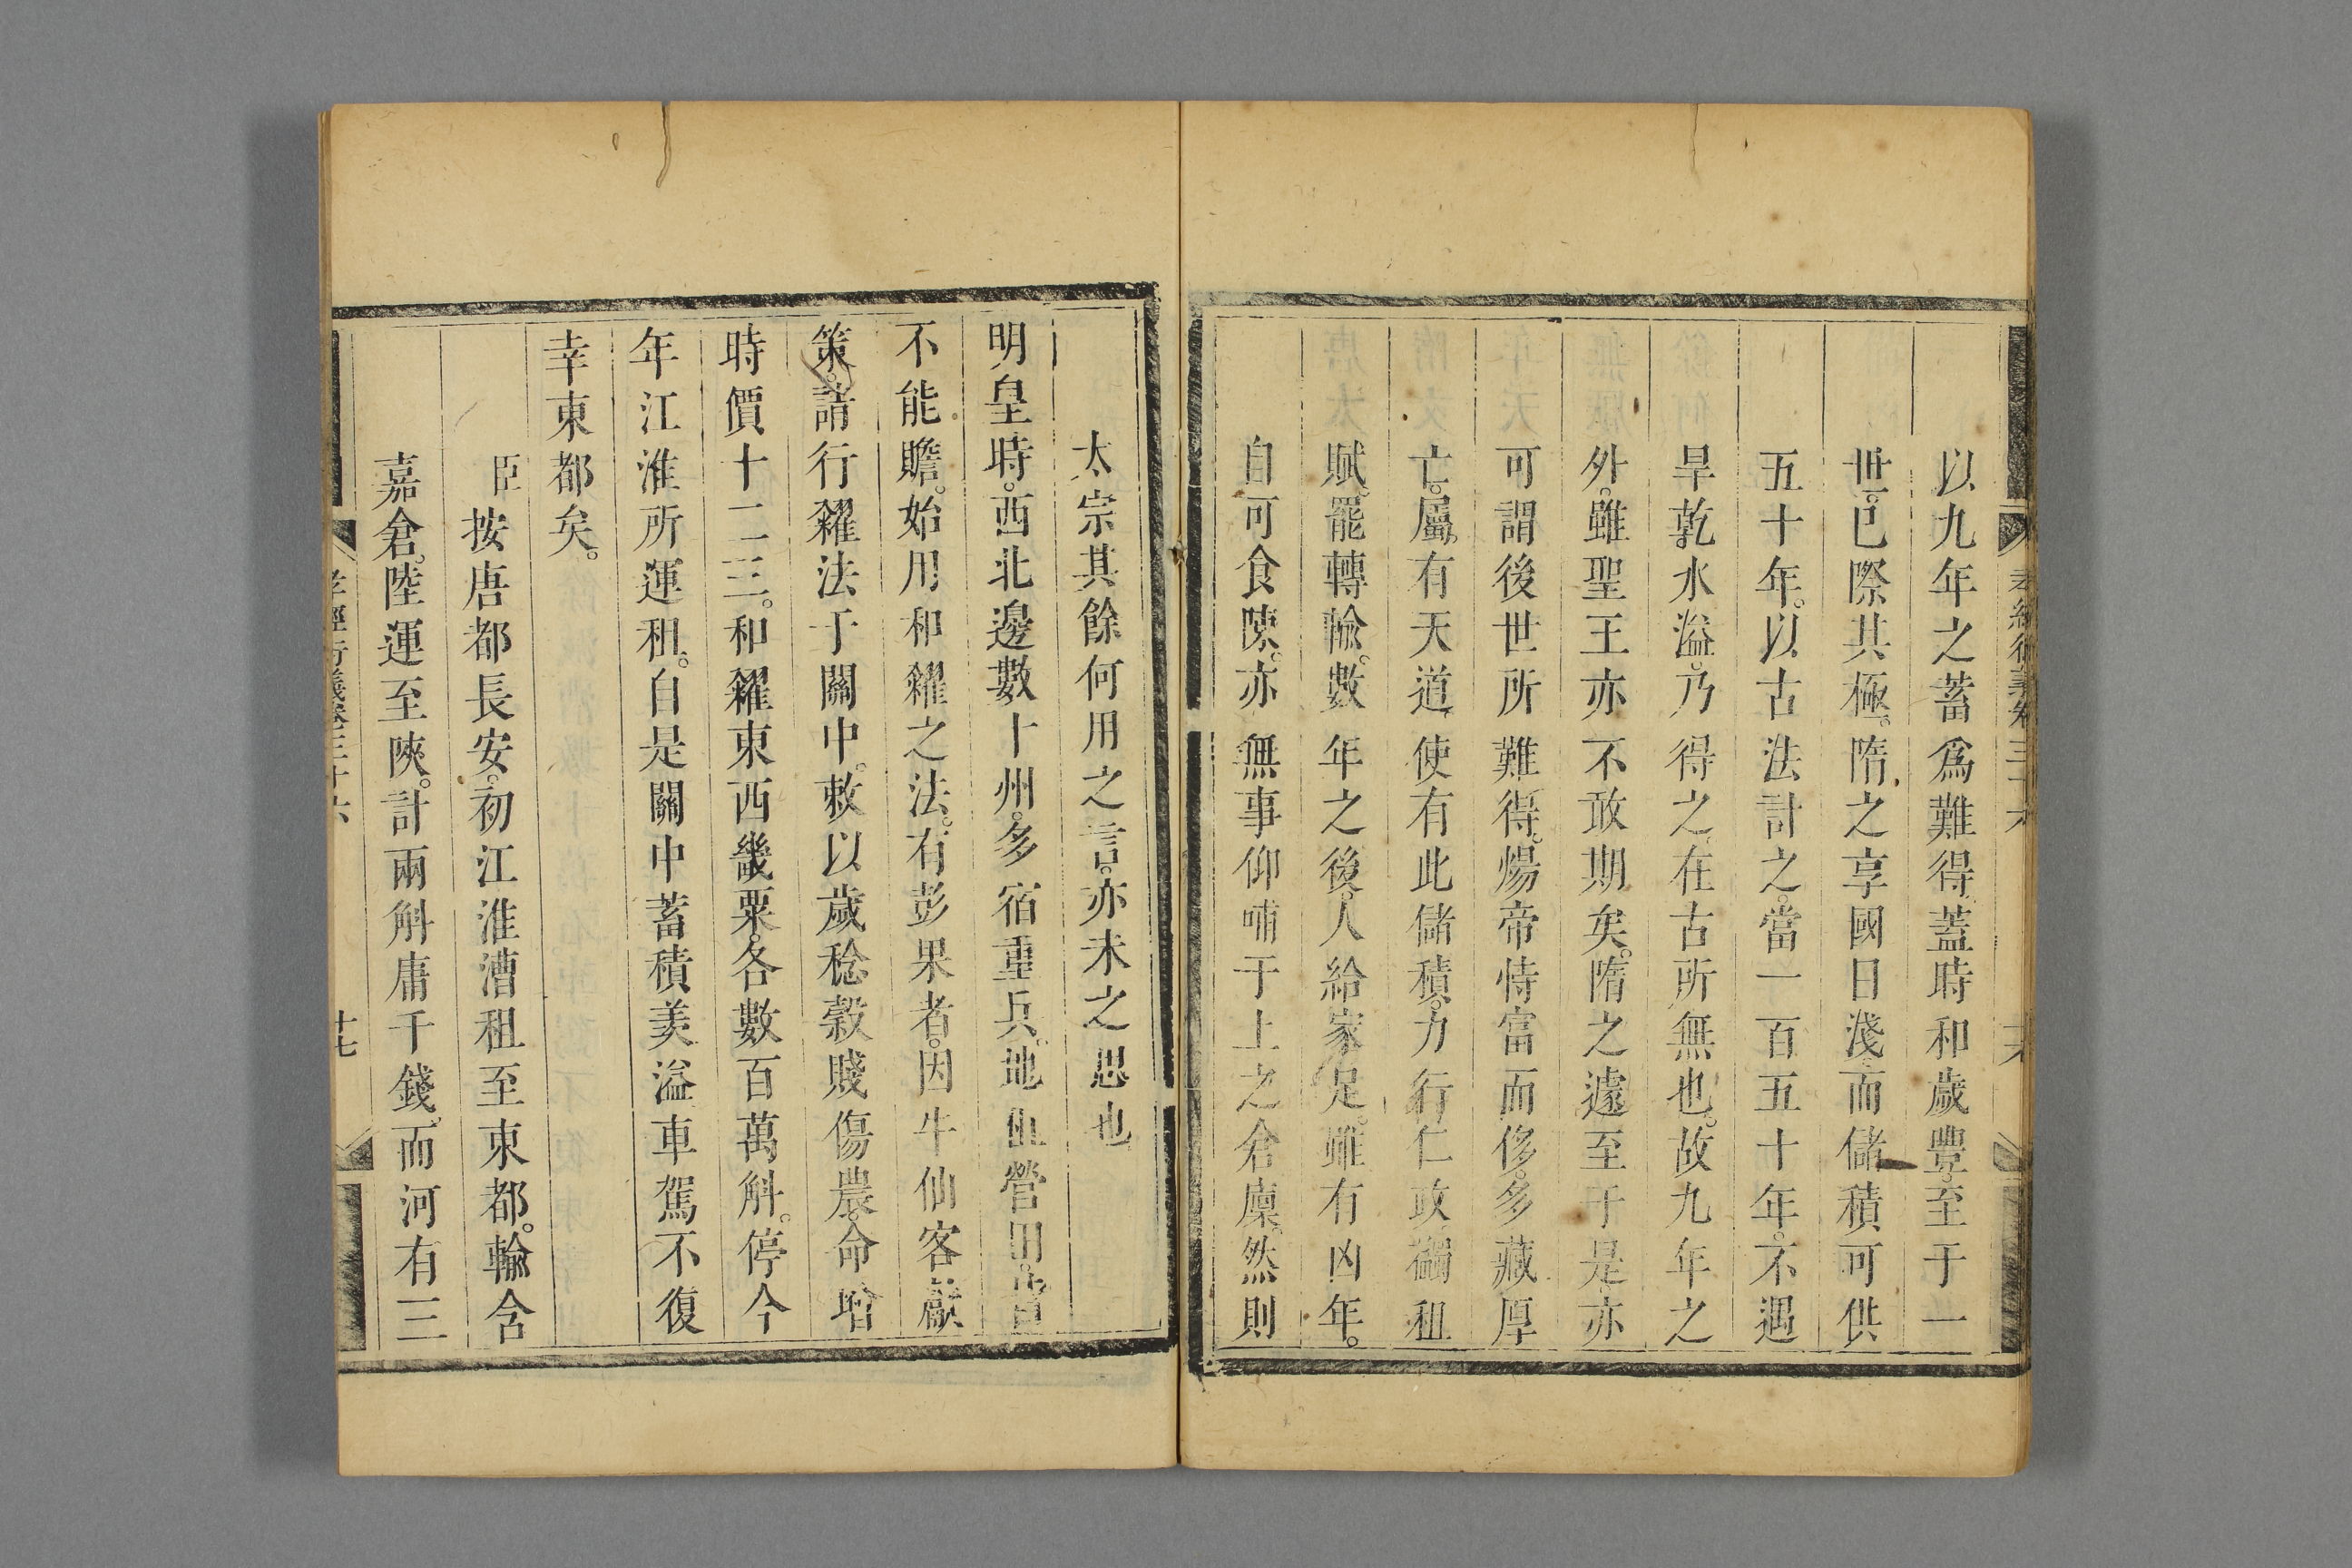 以九年之蓄爲難得蓋時和歲豐。至于一
世。已際其極。隋之享國日淺。而儲積可供
五十年。以古法計之。當一百五十年。不遇
旱乾。水溢。乃得之。在古所無也。故九年之
外。雖聖王亦不敢期矣。隋之遽至于是亦
可謂後世所難得。煬帝恃富而侈。多藏厚
亡。屬。有天道使有此儲積。力行仁政蠲租
賦。罷轉輸。數年之後。人給家足。雖有凶年。
自可食陳。亦無事仰哺于上之倉廩。然則
太宗其餘何用之言。亦未之思也
明皇時。西北邊數十州。多宿重兵。地租營田。皆
不能贍。始用和糴之法。有彭果者。因牛仙客獻
策。請行糴法于關中。敕以歲稔穀賤傷農。命增
時價十二三。和糴東西畿粟。各數百萬斛。停今
年江淮所運租。自是關中蓄積羨溢車駕不復
幸東都矣。
臣按唐都長安。初江淮漕租至東都。輸含
嘉倉。陸運至陝。計兩斛庸千錢。而河有三
孝經衍義卷三十六
十七